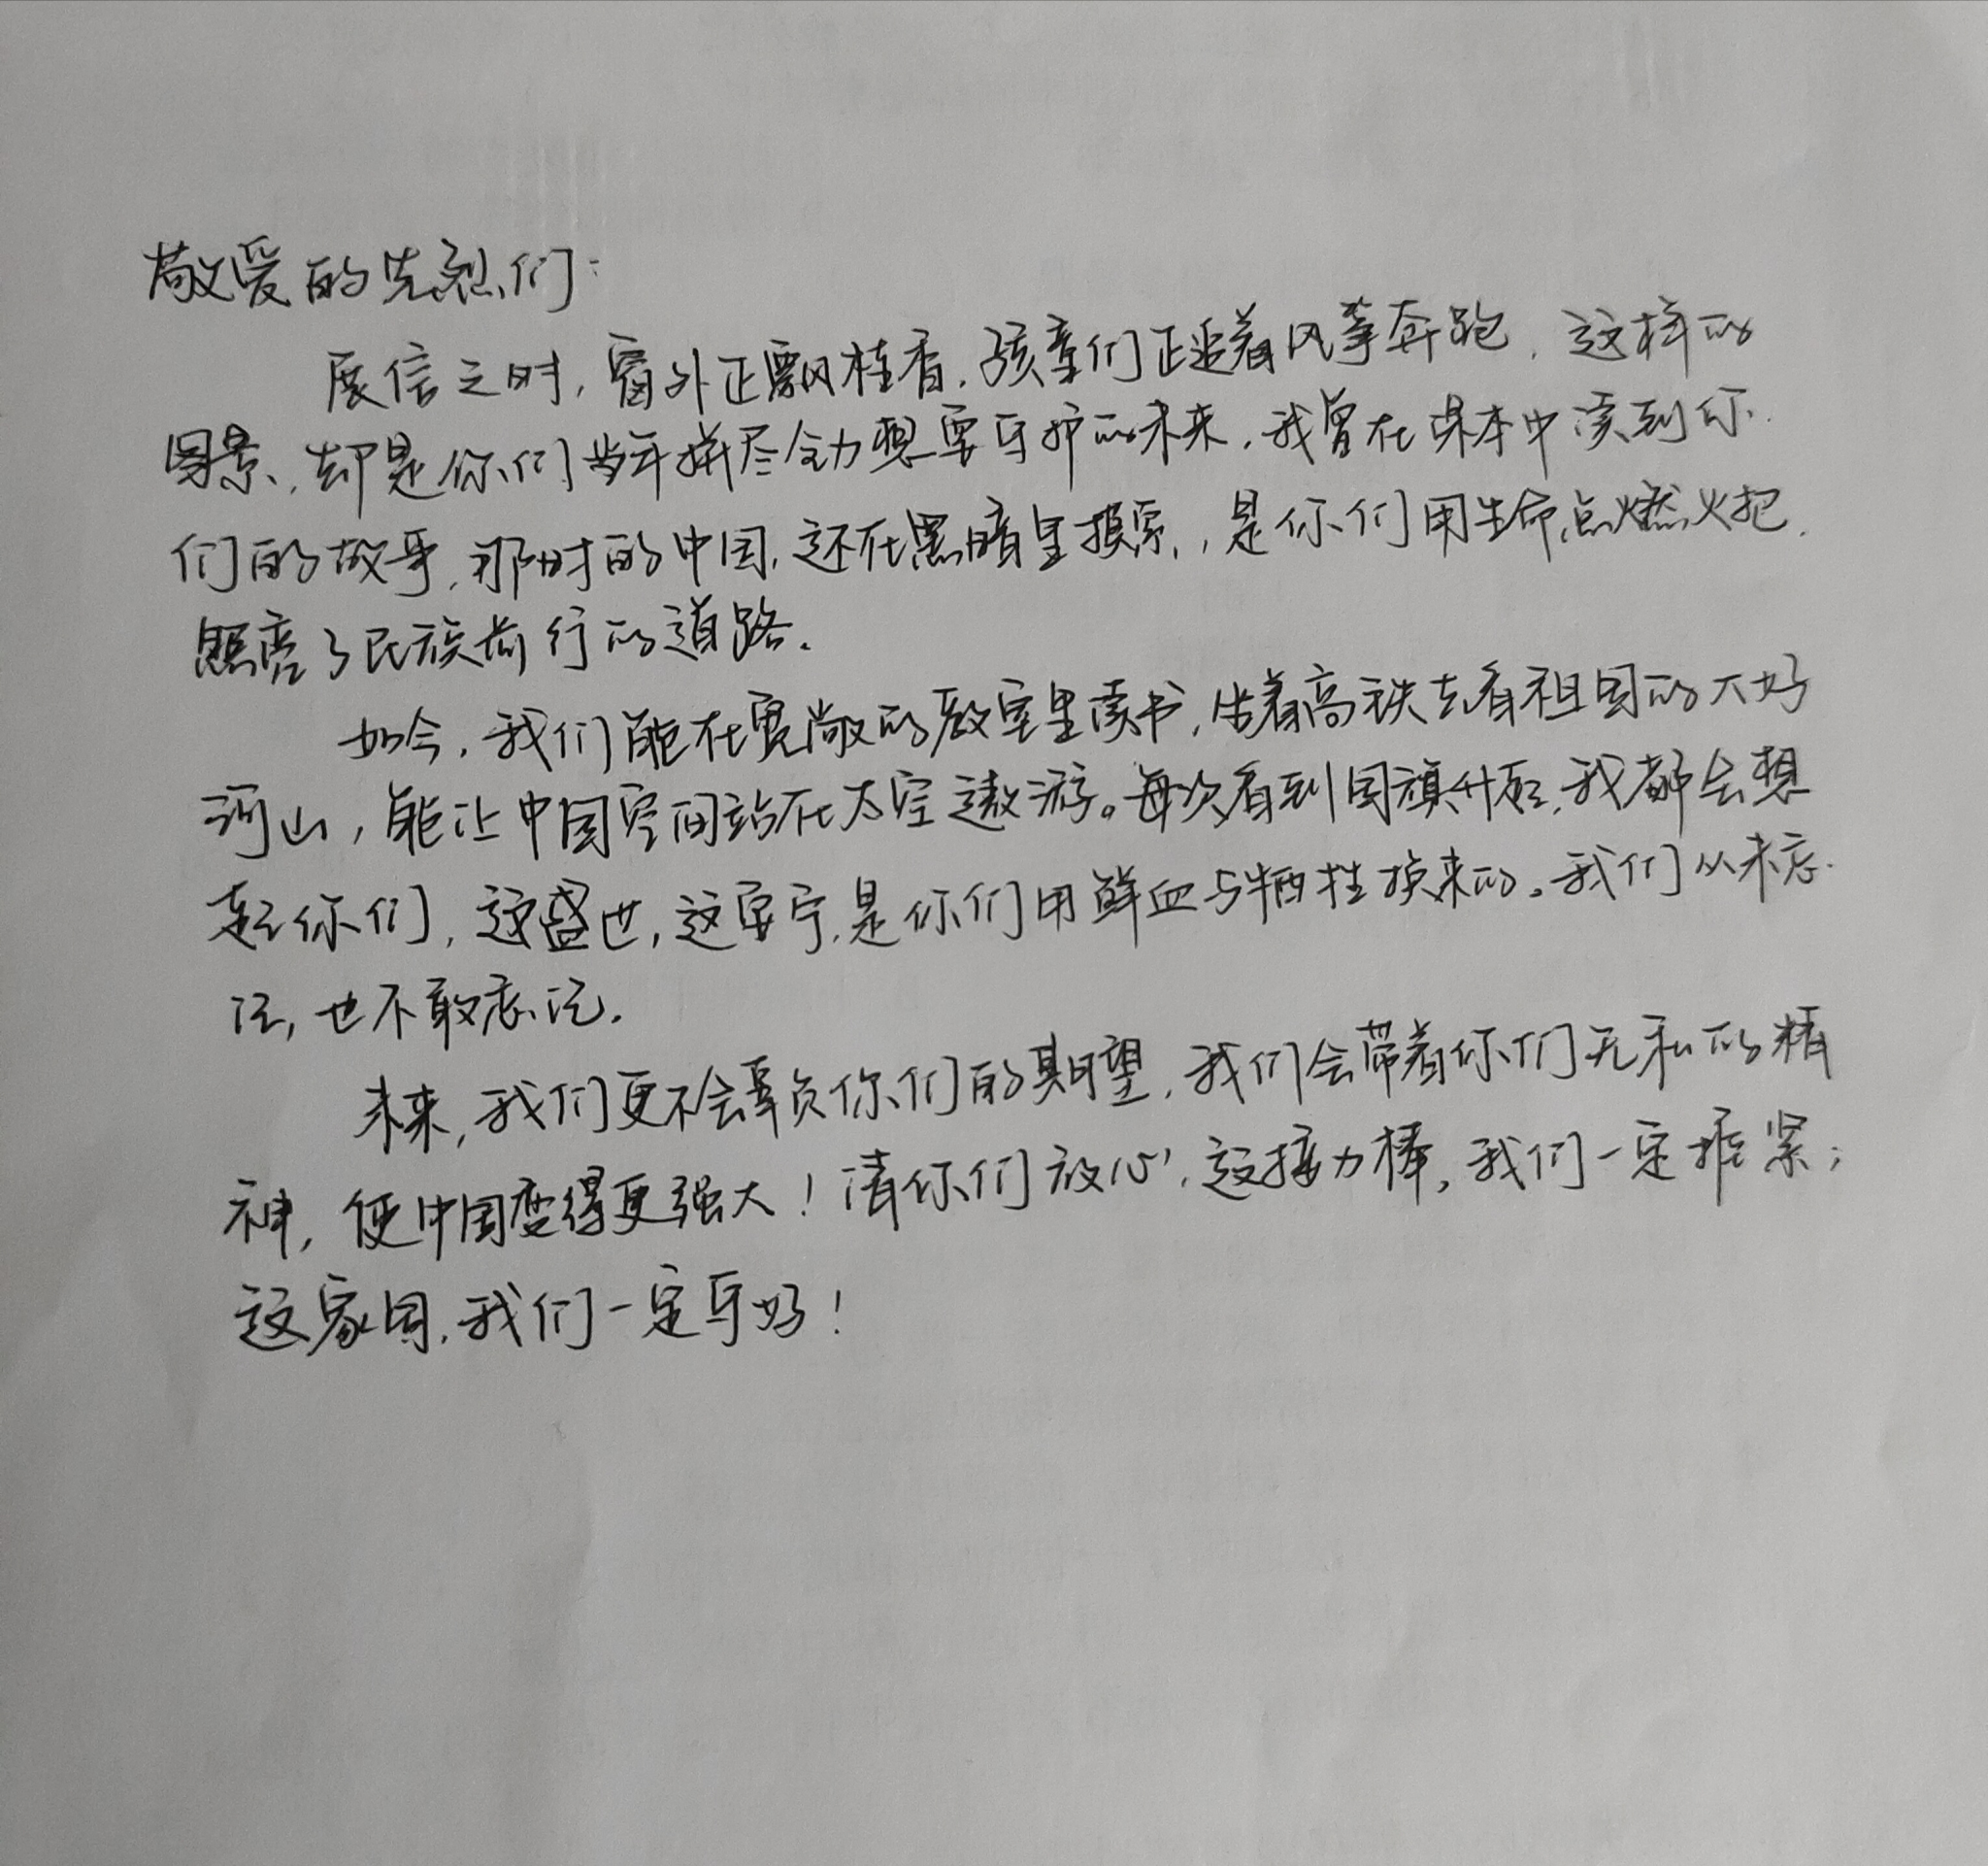 敬爱的先烈们：
展信之时，窗外正飘桂香，孩童们正追着风筝奔跑，这样的
图景，却是你们当年拼尽全力想要守护的未来，我曾在课本中读到你
们的故事，那时的中国，还在黑暗里摸索，是你们用生命点燃火把，
照亮了民族前行的道路。
如今，我们能在宽敞的教室里读书，坐着高铁去看祖国的大好
河山，能让中国空间站在太空遨游。每次看到国旗升起，我都会想
起你们，这盛世，这安宁，是你们用鲜血与牺牲换来的。我们从未忘
记，也不敢忘记。
未来，我们更不会辜负你们的期望，我们会带着你们无私的精
神，使中国变得更强大！请你们放心，这接力棒，我们一定握紧；
这家国，我们一定守好！